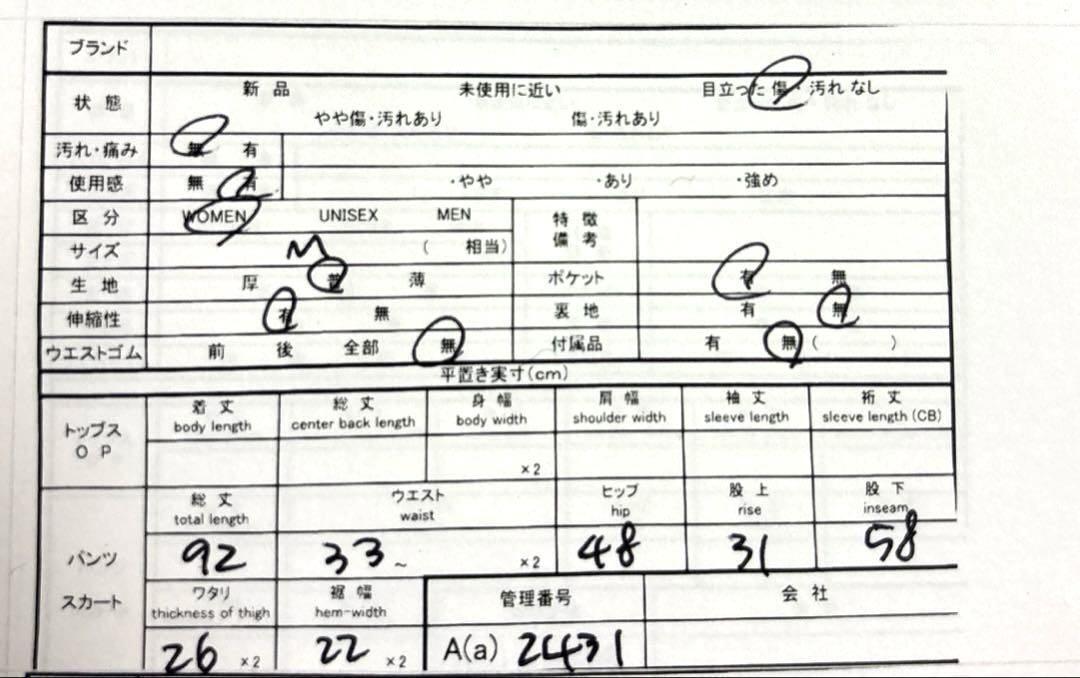 ブランド
状態 新品 未使用に近い 目立った傷・汚れなし
やや傷・汚れあり 傷・汚れあり
汚れ・痛み 無 有
使用感 無 有 ・やや ・あり ・強め
区分 WOMEN UNISEX MEN 特徴
備考
サイズ M ( 相当)
生地 厚 普 薄 ポケット 有 無
伸縮性 有 無 裏地 有 無
ウエストゴム 前 後 全部 無 付属品 有 無 ( )
平置き実寸(cm)
トップス
OP
着丈 総丈 身幅 肩幅 袖丈 裄丈
body length center back length body width shoulder width sleeve length sleeve length (CB)
×2
パンツ
スカート
総丈 ウエスト ヒップ 股上 股下
total length waist hip rise inseam
92 33~ ×2 48 31 58
ワタリ 裾幅 管理番号 会社
thickness of thigh hem-width
26 ×2 22 ×2 A(a) 2431